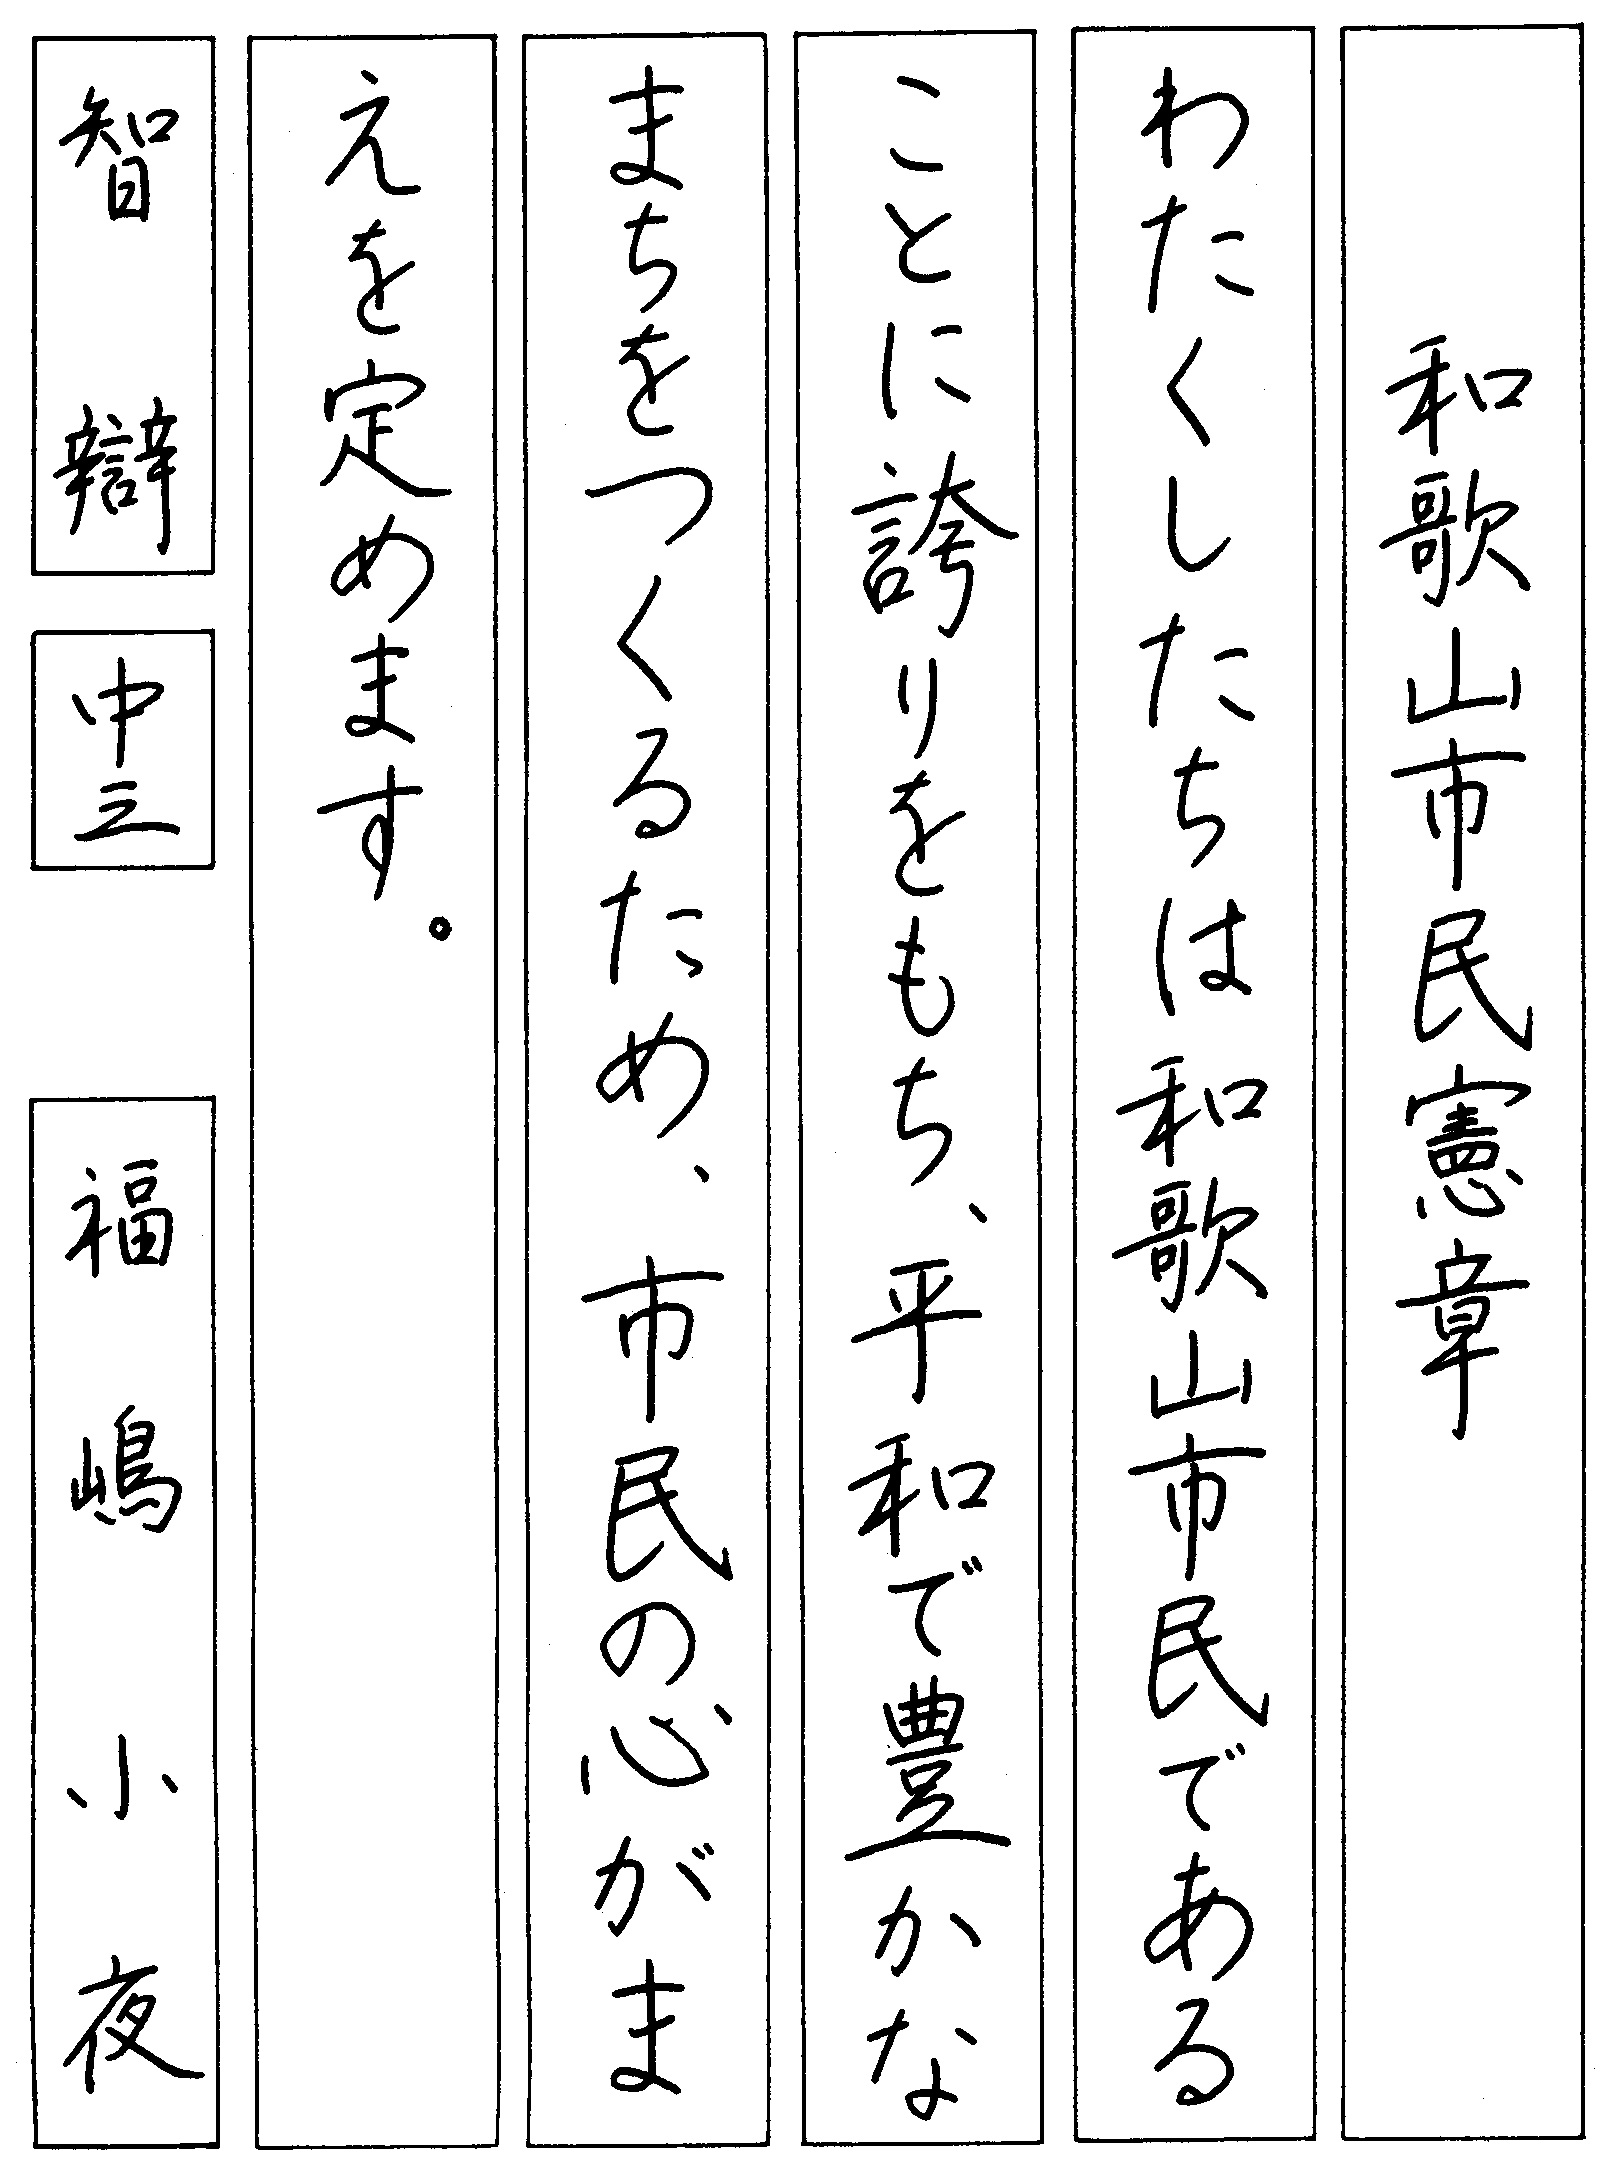 和歌山市民憲章
わたくしたちは和歌山市民である
ことに誇りをもち、平和で豊かな
まちをつくるため、市民の心がま
えを定めます。
智辯
中三
福嶋小夜